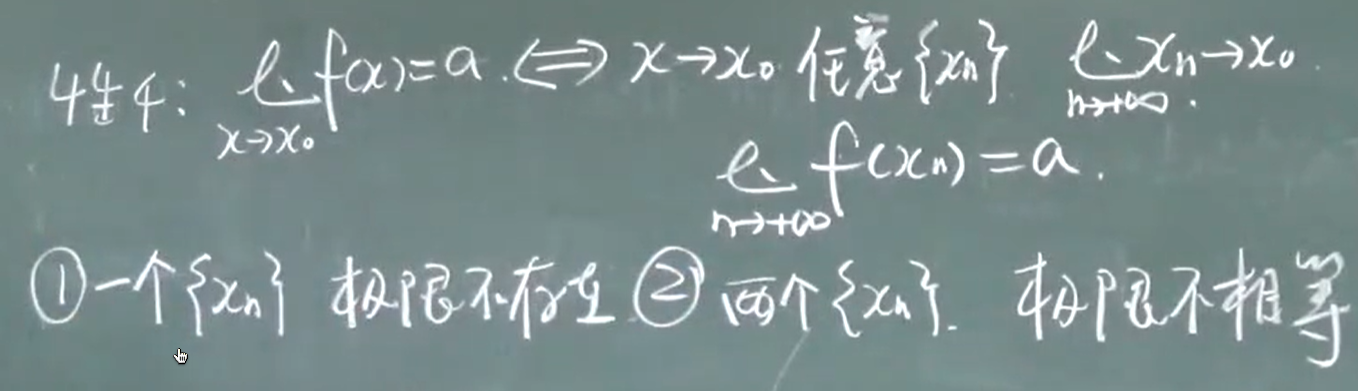 性4: lim f(x)=a.⟺ x→x₀ 任意{xₙ} lim xₙ→x₀.
x→x₀ n→+∞.
lim f(xₙ)=a.
n→+∞
①一个{xₙ} 极限不存在 ②两个{xₙ}. 极限不相等